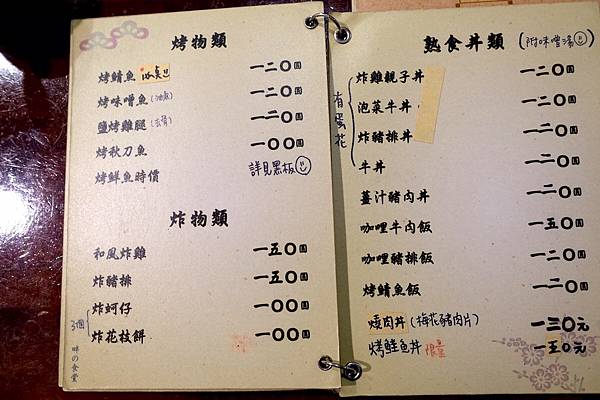 烤物類
烤鯖魚 一二〇圓
烤味噌魚(油魚) 一二〇圓
鹽烤雞腿(去骨) 一二〇圓
烤秋刀魚 一〇〇圓
烤鮮魚時價 詳見黑板
炸物類
和風炸雞 一五〇圓
炸豬排 一五〇圓
3個
炸蚵仔 一〇〇圓
炸花枝餅 一〇〇圓
畔の食堂
熟食丼類(附味噌湯)
有蛋花
炸雞親子丼 一二〇圓
泡菜牛丼 一二〇圓
炸豬排丼 一二〇圓
牛丼 一二〇圓
薑汁豬肉丼 一二〇圓
咖哩牛肉飯 一五〇圓
咖哩豬排飯 一二〇圓
烤鯖魚飯 一二〇圓
燒肉丼(梅花豬肉片) 一三〇元
烤鮭魚丼 限量 一五〇元